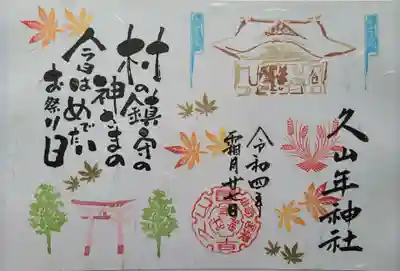 久山年神社
令和四年
霜月廿七日
村の鎮守の
神さまの
今日はめでたい
お祭り日